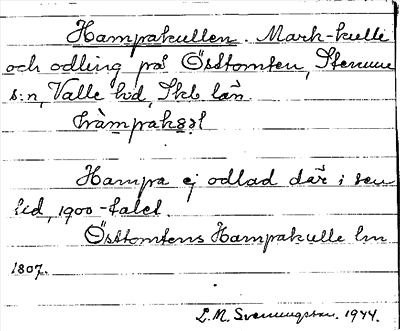 Hampakullen. Mark-kulle
och odling på Östtomten, Stenum
s:n, Valle hd, Skb län.
hàmpakəl
Hampa ej odlad där i sen
tid, 1900-talet.
Östtomtens Hampakulle lm
1807.
L.M. Svenungsson. 1944.